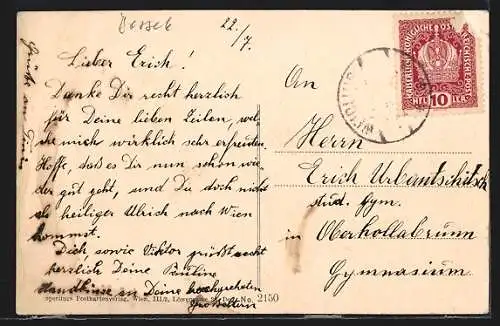 22./7.
Lieber Erich!
Danke Dir recht herzlich
für Deine lieben Zeilen, wel-
che mich wirklich sehr erfreuten
Hoffe, daß es Dir nun schon wie-
der gut geht, und Du doch nicht
als heiliger Ulrich nach Wien
kommst.
Dich, sowie Viktor grüßt recht
herzlich Deine Pauline
Handküsse an Deine hochgeehrten
Großeltern
An
Herrn
Erich Urbantschitsch
stud. Gym.
in Oberhollabrunn
Gymnasium
KAISERLICHE KÖNIGLICHE ÖSTERREICHISCHE POST
HEL 10 LER
Postkartenverlag, Wien, III/2, No. 2150